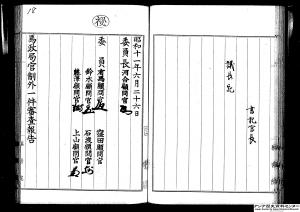 18
秘
議長宛
書記官長
昭和十一年六月二十六日
委員長河合顧問官
委員有馬顧問官
窪田顧問官
鈴木顧問官
石渡顧問官
藤澤顧問官
上山顧問官
馬政局官制外一件審査報告